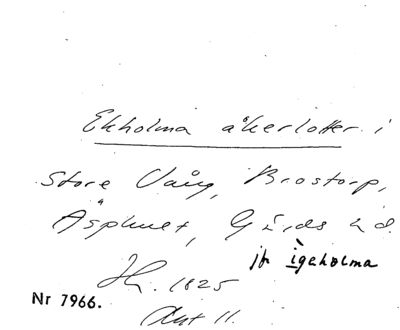 Ekholma åkerlotter i
Store Vång, Brostorp,
Äsphult, Gärds hd.
jfr ìgeholma
1825
Nr 7966.
Akt 11.